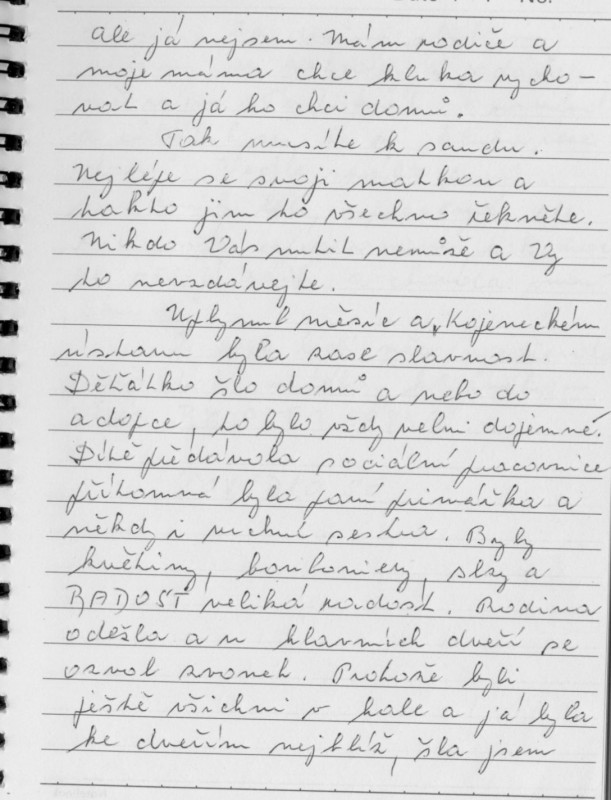 ale já nejsem. Mám rodiče a
moje máma chce kluka vycho-
vat a já ho chci domů.
Tak musíte k soudu.
Nejlépe se svojí matkou a
takto jim to všechno řekněte.
Nikdo Vás nutit nemůže a Vy
to nevzdávejte.
Uplynul měsíc a v Kojeneckém
ústavu byla zase slavnost.
Děťátko šlo domů a nebo do
adopce, to bylo vždy velmi dojemné.
Dítě předávala sociální pracovnice
přítomná byla paní primářka a
někdy i vrchní sestra. Byly
květiny, bonboniery, slzy a
RADOST veliká radost. Rodina
odešla a u hlavních dveří se
ozval zvonek. Protože byli
ještě všichni v hale a já byla
ke dveřím nejblíž, šla jsem